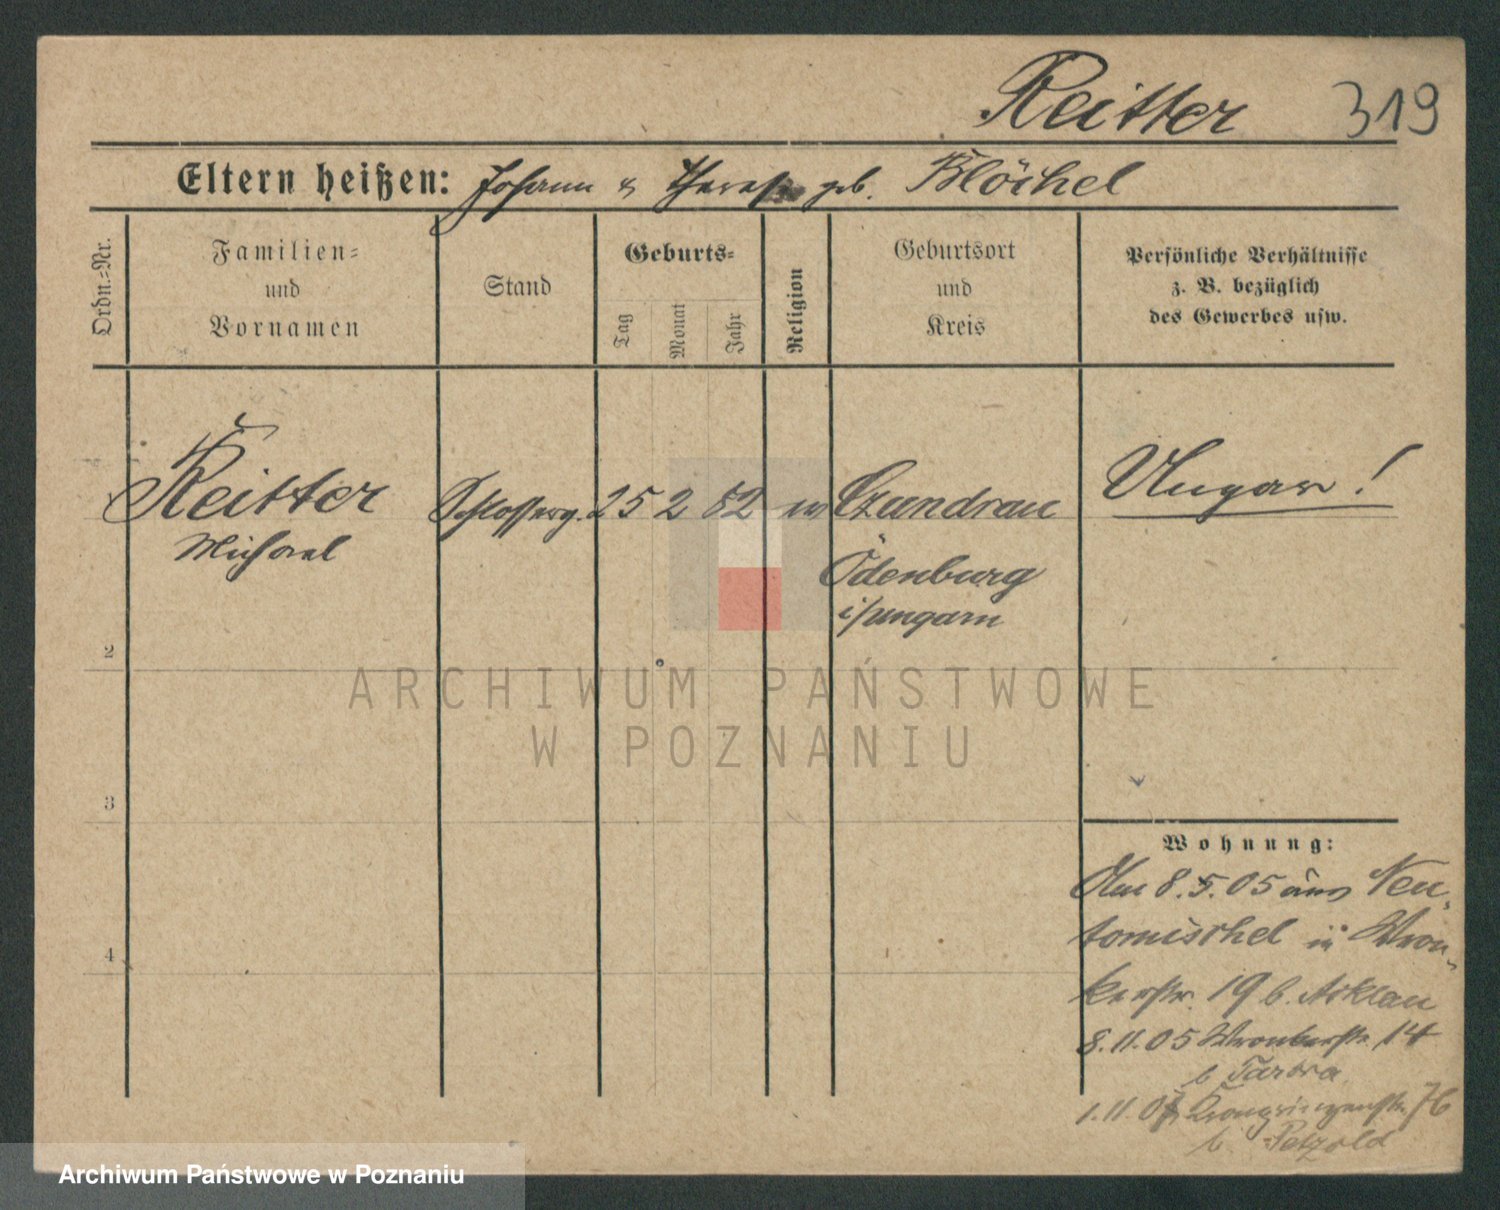 Reitter 319
Eltern heißen: Johann & Therese geb. Blöchel
Ordn.=Nr.
Familien=
und
Vornamen
Stand
Geburts=
Tag
Monat
Jahr
Religion
Geburtsort
und
Kreis
Persönliche Verhältnisse
z. B. bezüglich
des Gewerbes usw.
Reitter Schlosserg. 25 2 82 Czundrau Ungar!
Michael
Ödenburg
i/Ungarn
2
3
4
Wohnung:
Am 8.5.05 aus Neu-
tomischel in Wron-
kerstr. 19 b.
8.11.05 Wronkerstr. 14
b
1.11.0 Kronprinzenstr. 76
b. Petzold
ARCHIWUM PAŃSTWOWE
W POZNANIU
Archiwum Państwowe w Poznaniu